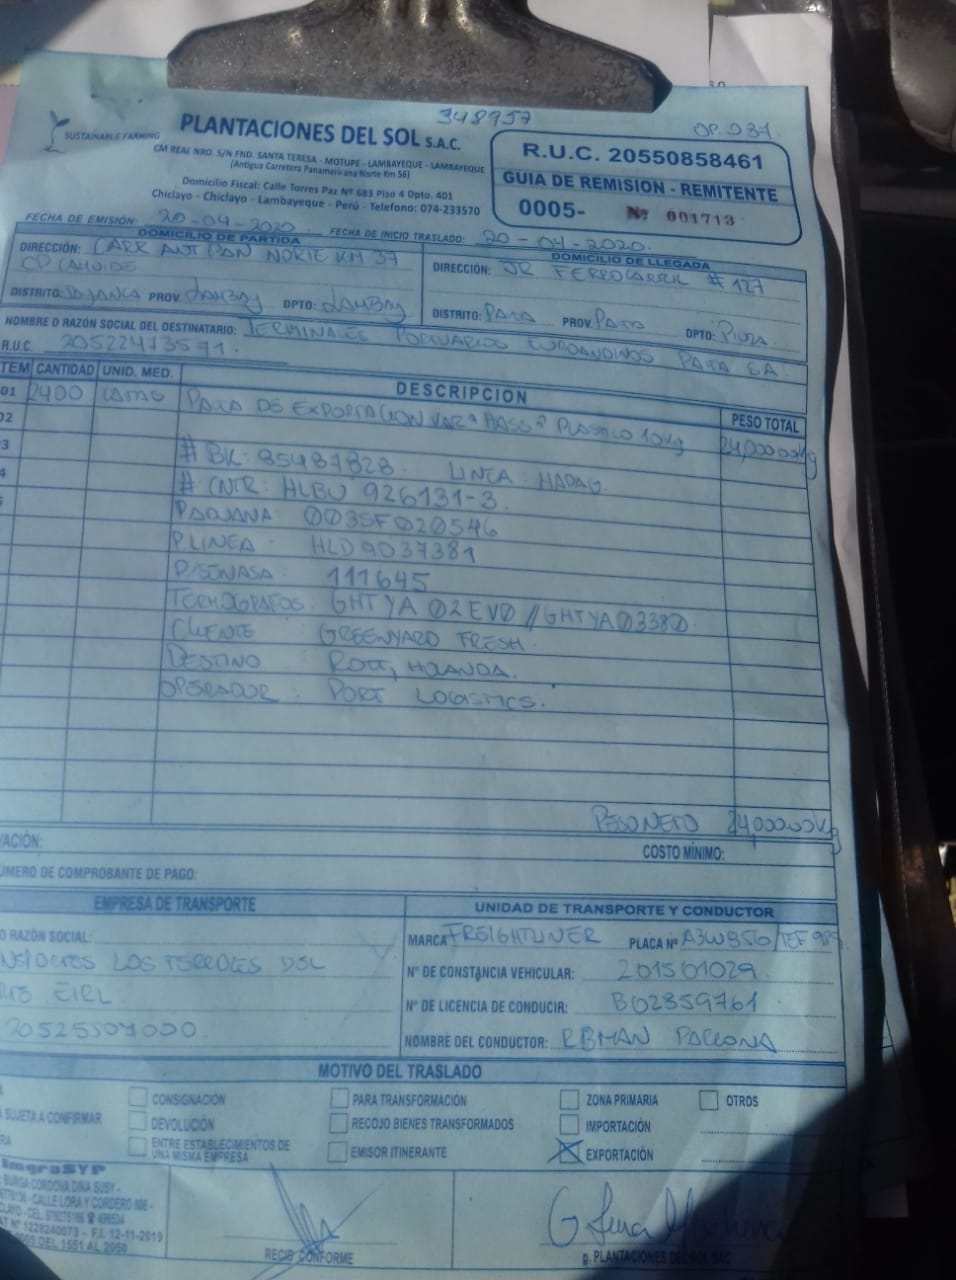 348957
OP. 031
SUSTAINABLE FARMING
PLANTACIONES DEL SOL S.A.C.
CM REAL NRO. S/N FND. SANTA TERESA - MOTUPE - LAMBAYEQUE - LAMBAYEQUE
(Antigua Carretera Panamericana Norte Km 56)
Domicilio Fiscal: Calle Torres Paz Nº 683 Piso 4 Dpto. 401
Chiclayo - Chiclayo - Lambayeque - Perú - Telefono: 074-233570
R.U.C. 20550858461
GUIA DE REMISION - REMITENTE
0005- Nº 001713
FECHA DE EMISIÓN: 20-04-2020 FECHA DE INICIO TRASLADO: 20-04-2020.
DOMICILIO DE PARTIDA
DIRECCIÓN: CARR ANT PAN NORTE KM 37
CP CAHUIDE
DISTRITO: JAYANCA PROV. LAMBAY DPTO: LAMBAY
DOMICILIO DE LLEGADA
DIRECCIÓN: JR FERROCARRIL # 127
DISTRITO: PAITA PROV. PAITA DPTO: PIURA
NOMBRE O RAZÓN SOCIAL DEL DESTINATARIO: TERMINALES PORTUARIOS EUROANDINOS PAITA SA.
R.U.C. 20522473571.
ITEM CANTIDAD UNID. MED. DESCRIPCION PESO TOTAL
01 2400 CAJAS PALTA DE EXPORTACION VAR HASS PLASTICO 10Kg 24,000.00Kg
02
3 # BK: 85487828. LINEA: HAPAG.
4 # CNTR: HLBU 926131-3.
P.ADUANA: 003SF020546
P.LINEA: HLD9037381
P/SENASA: 111645
TERMOGRAFOS: GHTYA02EV0 // GHTYA03380.
CLIENTE : GREENYARD FRESH.
DESTINO : ROTT, HOLANDA.
OPERADOR : PORT LOGISTICS.
PESO NETO 24,000.00Kg
VACIÓN:
COSTO MÍNIMO:
ÚMERO DE COMPROBANTE DE PAGO:
EMPRESA DE TRANSPORTE
O RAZÓN SOCIAL:
NSPORTES LOS TERRIBLES DEL
EIRL
20525507000.
UNIDAD DE TRANSPORTE Y CONDUCTOR
MARCA FREIGHTLINER PLACA Nº A3W856/TEF 987
Nº DE CONSTANCIA VEHICULAR: 201501029
Nº DE LICENCIA DE CONDUCIR: B02859761
NOMBRE DEL CONDUCTOR:
MOTIVO DEL TRASLADO
CONSIGNACIÓN PARA TRANSFORMACIÓN ZONA PRIMARIA OTROS
SUJETA A CONFIRMAR DEVOLUCIÓN RECOJO BIENES TRANSFORMADOS IMPORTACIÓN
RA ENTRE ESTABLECIMIENTOS DE UNA MISMA EMPRESA EMISOR ITINERANTE EXPORTACIÓN
ImgraSYP
BURGA CORDOVA DINA SUSY -
CALLE LORA Y CORDERO
F.I. 12-11-2019
DEL 1551 AL 2050
RECIBI CONFORME
p. PLANTACIONES DEL SOL SAC